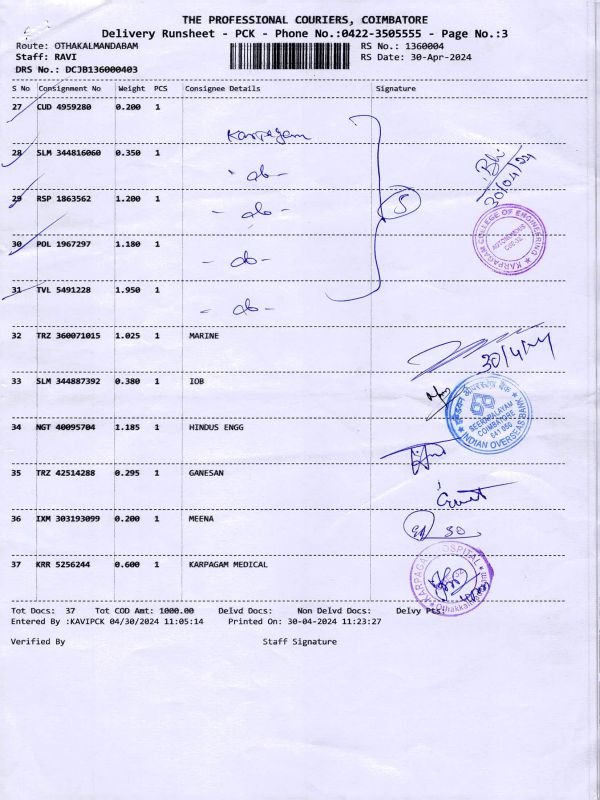 THE PROFESSIONAL COURIERS, COIMBATORE
Delivery Runsheet - PCK - Phone No.:0422-3505555 - Page No.:3
Route: OTHAKALMANDABAM RS No.: 1360004
Staff: RAVI RS Date: 30-Apr-2024
DRS No.: DCJB136000403
S No Consignment No Weight PCS Consignee Details Signature
27 CUD 4959280 0.200 1
Karpagam
28 SLM 344816060 0.350 1
- do -
30/04/24
29 RSP 1863562 1.200 1
- do -
5
KARPAGAM COLLEGE OF ENGINEERING
AUTONOMOUS
30 POL 1967297 1.180 1
- do -
31 TVL 5491228 1.950 1
- do -
32 TRZ 360071015 1.025 1 MARINE
30/4/24
33 SLM 344887392 0.380 1 IOB
इण्डियन ओवरसीज़ बैंक
SEERAPALAYAM
COIMBATORE
641 050
INDIAN OVERSEAS BANK
34 NGT 40095704 1.185 1 HINDUS ENGG
35 TRZ 42514288 0.295 1 GANESAN
36 IXM 303193099 0.200 1 MEENA
37 KRR 5256244 0.600 1 KARPAGAM MEDICAL
KARPAGAM HOSPITAL
Tot Docs: 37 Tot COD Amt: 1000.00 Delvd Docs: Non Delvd Docs: Delvy Pts:
Entered By :KAVIPCK 04/30/2024 11:05:14 Printed On: 30-04-2024 11:23:27
Verified By Staff Signature